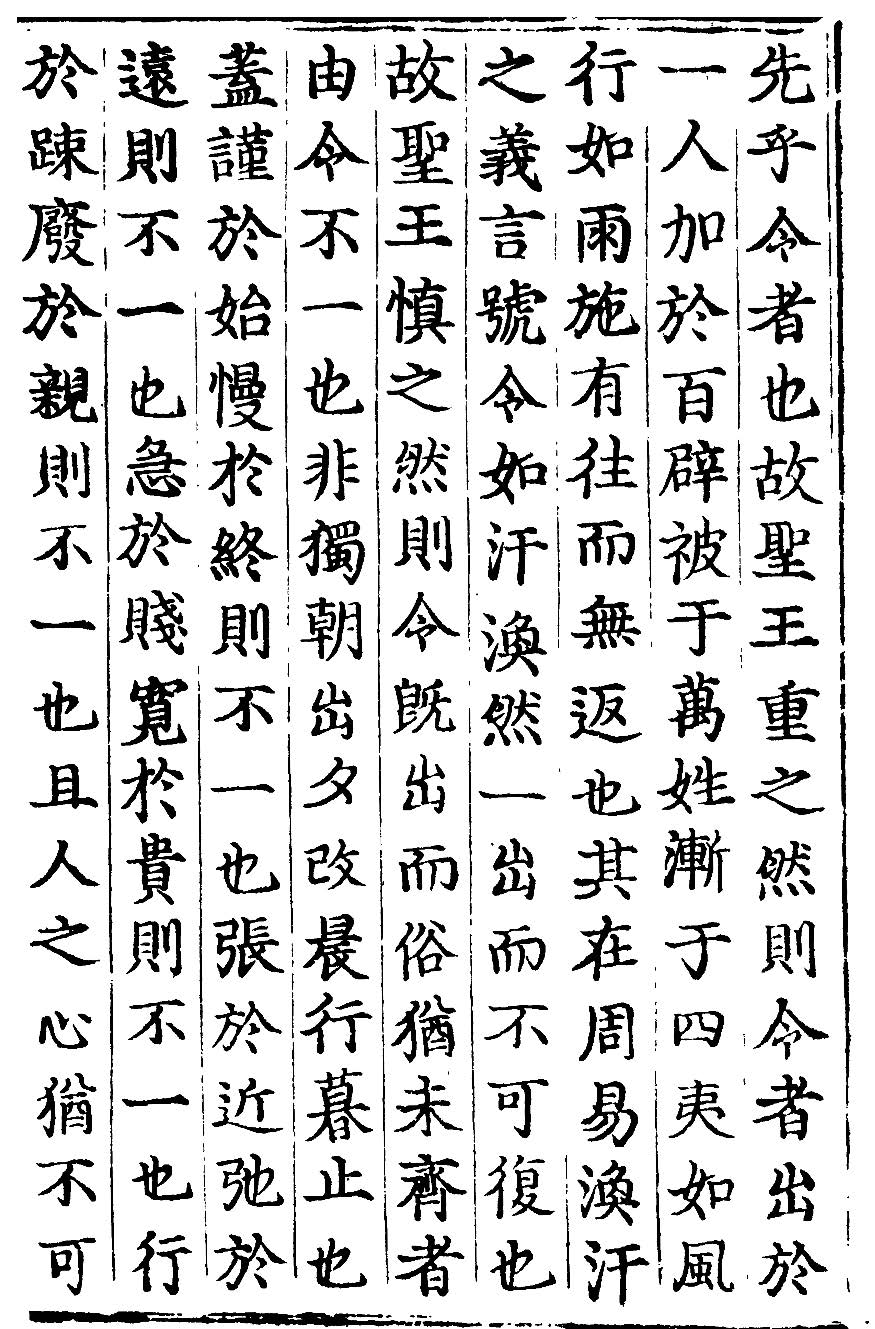 先乎令者也故聖王重之然則令者出於
一人加於百辟被于萬姓漸于四夷如風
行如雨施有往而無返也其在周易渙汗
之義言號令如汗渙然一出而不可復也
故聖王慎之然則令既出而俗猶未齊者
由令不一也非獨朝出夕改晨行暮止也
蓋謹於始慢於終則不一也張於近弛於
遠則不一也急於賤寬於貴則不一也行
於踈廢於親則不一也且人之心猶不可